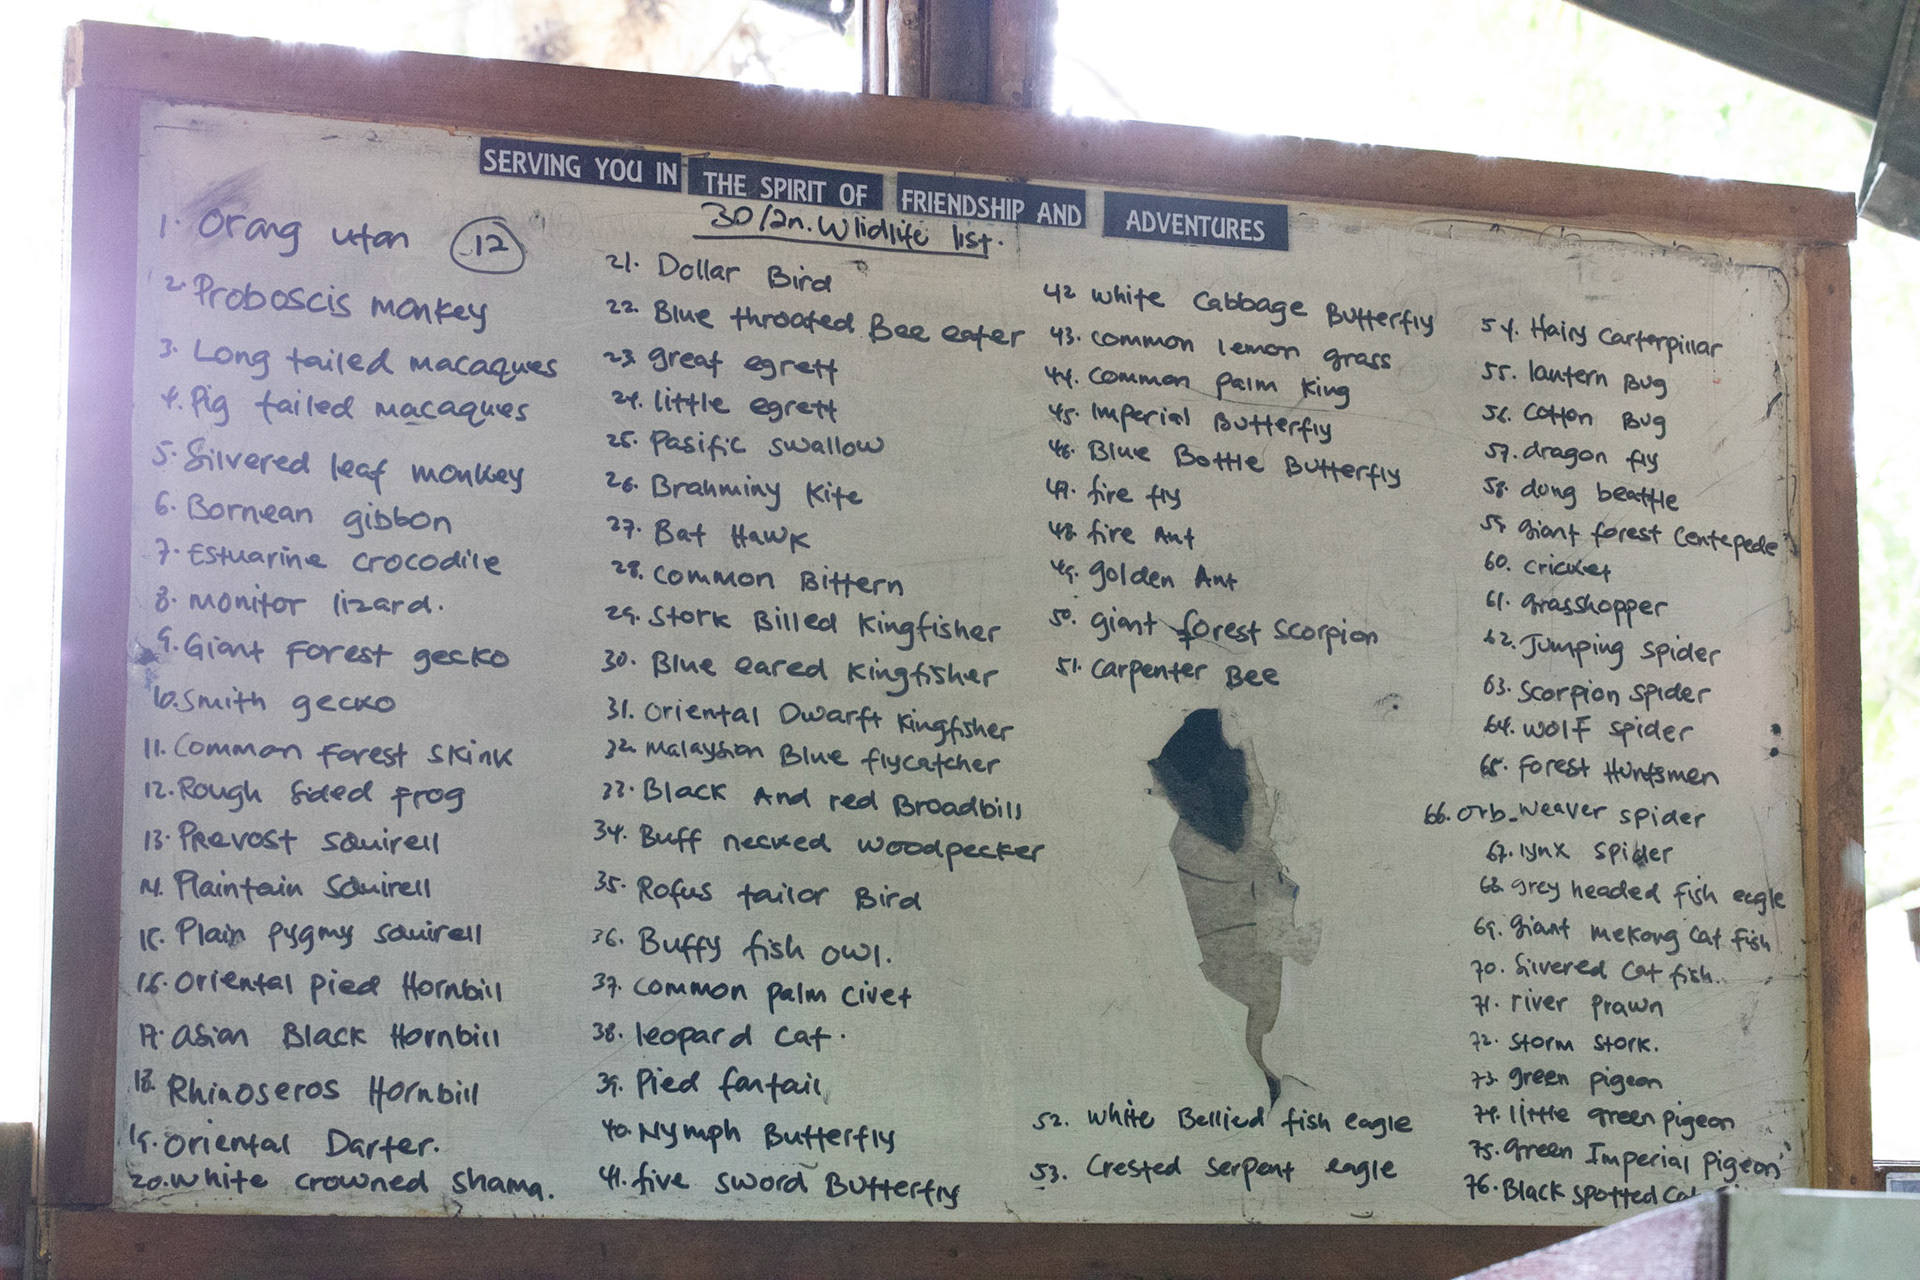 SERVING YOU IN THE SPIRIT OF FRIENDSHIP AND ADVENTURES
30/Jan. Wlidlife list.
1. Orang utan 12
2. Proboscis monkey
3. Long tailed macaques
4. Pig tailed macaques
5. Silvered leaf monkey
6. Bornean gibbon
7. Estuarine crocodile
8. monitor lizard.
9. Giant Forest gecko
10. Smith gecko
11. Common forest skink
12. Rough Sided frog
13. Prevost Squirell
14. Plaintain Squirell
15. Plain pygmy squirell
16. Oriental pied Hornbill
17. Asian Black Hornbill
18. Rhinoseros Hornbill
19. Oriental Darter.
20. White crowned shama.
21. Dollar Bird
22. Blue throated Bee eater
23. great egrett
24. little egrett
25. Pasific swallow
26. Brahminy Kite
27. Bat Hawk
28. Common Bittern
29. Stork Billed Kingfisher
30. Blue eared Kingfisher
31. Oriental Dwarft Kingfisher
32. Malaysian Blue flycatcher
33. Black And red Broadbill
34. Buff necked woodpecker
35. Rofus tailor Bird
36. Buffy fish owl.
37. Common palm civet
38. leopard cat.
39. Pied fantail
40. Nymph Butterfly
41. five sword Butterfly
42 white Cabbage Butterfly
43. common lemon grass
44. Common palm King
45. Imperial Butterfly
46. Blue Bottle Butterfly
47. fire fly
48. fire Ant
49. golden Ant
50. giant forest Scorpion
51. Carpenter Bee
52. White Bellied fish eagle
53. Crested serpent eagle
54. Hairy Carterpillar
55. lantern Bug
56. Cotton Bug
57. dragon fly
58. dung beattle
59. giant forest Centepede
60. cricket
61. grasshopper
62. Jumping spider
63. Scorpion spider
64. wolf spider
65. Forest Huntsmen
66. Orb-weaver spider
67. lynx spider
68. grey headed fish eagle
69. giant mekong cat fish
70. Silvered Cat fish.
71. river Prawn
72. Storm Stork.
73. green pigeon
74. little green pigeon
75. Green Imperial Pigeon
76. Black spotted